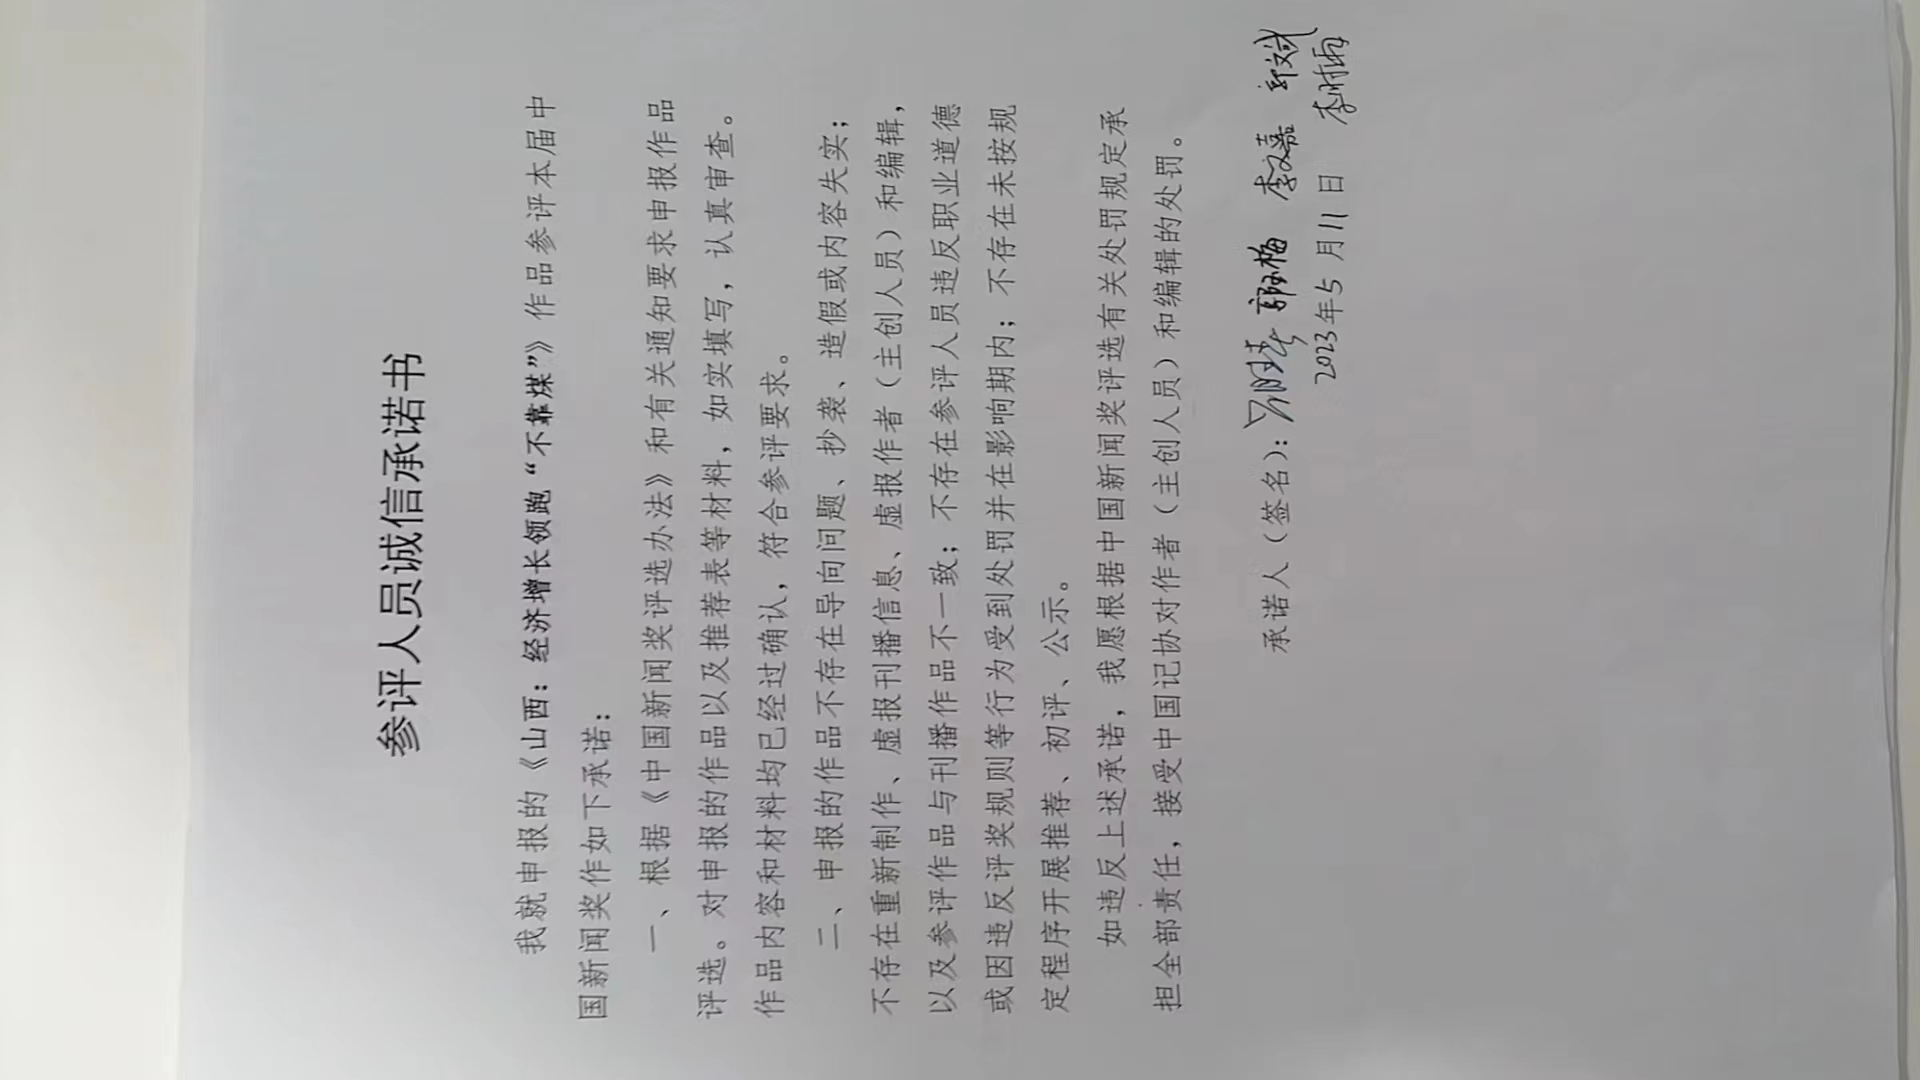 参评人员诚信承诺书
我就申报的《山西：经济增长领跑“不靠煤”》作品参评本届中
国新闻奖作如下承诺：
一、根据《中国新闻奖评选办法》和有关通知要求申报作品
评选。对申报的作品以及推荐表等材料，如实填写，认真审查。
作品内容和材料均已经过确认，符合参评要求。
二、申报的作品不存在导向问题、抄袭、造假或内容失实；
不存在重新制作、虚报刊播信息、虚报作者（主创人员）和编辑，
以及参评作品与刊播作品不一致；不存在参评人员违反职业道德
或因违反评奖规则等行为受到处罚并在影响期内；不存在未按规
定程序开展推荐、初评、公示。
如违反上述承诺，我愿根据中国新闻奖评选有关处罚规定承
担全部责任，接受中国记协对作者（主创人员）和编辑的处罚。
承诺人（签名）： 李文嘉
2023年5月11日 李时雨